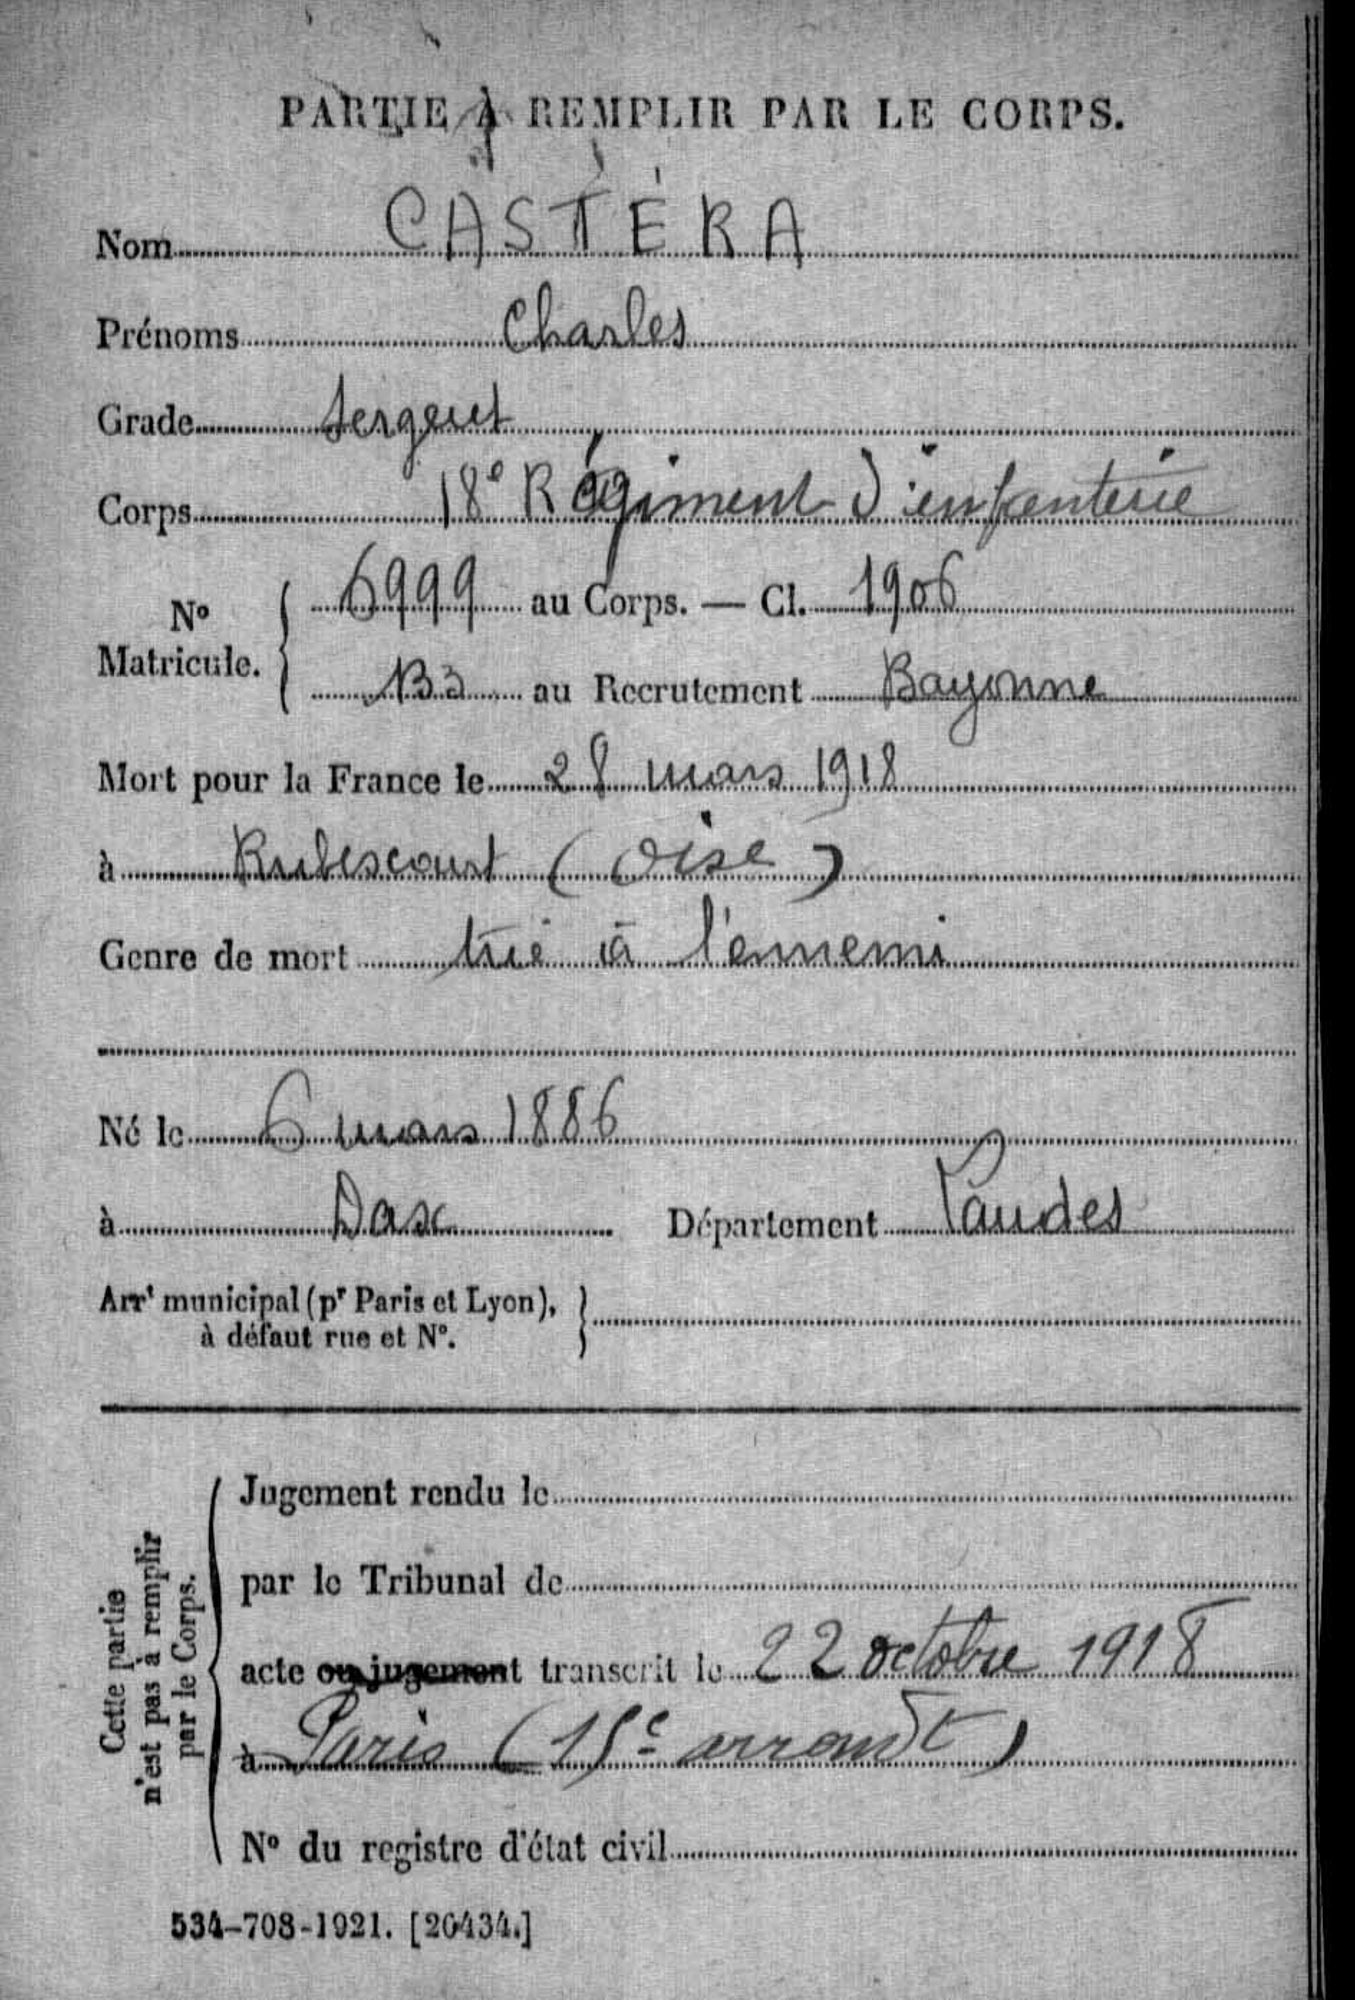 PARTIE À REMPLIR PAR LE CORPS.
Nom CASTÉRA
Prénoms Charles
Grade Sergent
Corps 18e Régiment d'infanterie
No Matricule. 6999 au Corps. — Cl. 1906
133 au Recrutement Bayonne
Mort pour la France le 28 mars 1918
à Rubescourt (Oise)
Genre de mort tué à l'ennemi
Né le 6 mars 1886
à Dax Département Landes
Arrt municipal (pr Paris et Lyon),
à défaut rue et No.
Cette partie
n'est pas à remplir
par le Corps.
Jugement rendu le
par le Tribunal de
acte ou jugement transcrit le 22 octobre 1918
à Paris (15e arrondt)
No du registre d'état civil
534-708-1921. [26434.]